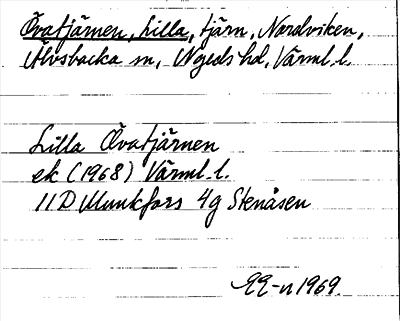 Övatjärnen, Lilla, tjärn, Nordviken,
Älvsbacka sn, Nyeds hd, Värml. l.
Lilla Övatjärnen
ek (1968) Värml. l.
11D Munkfors 4g Stenåsen
1969